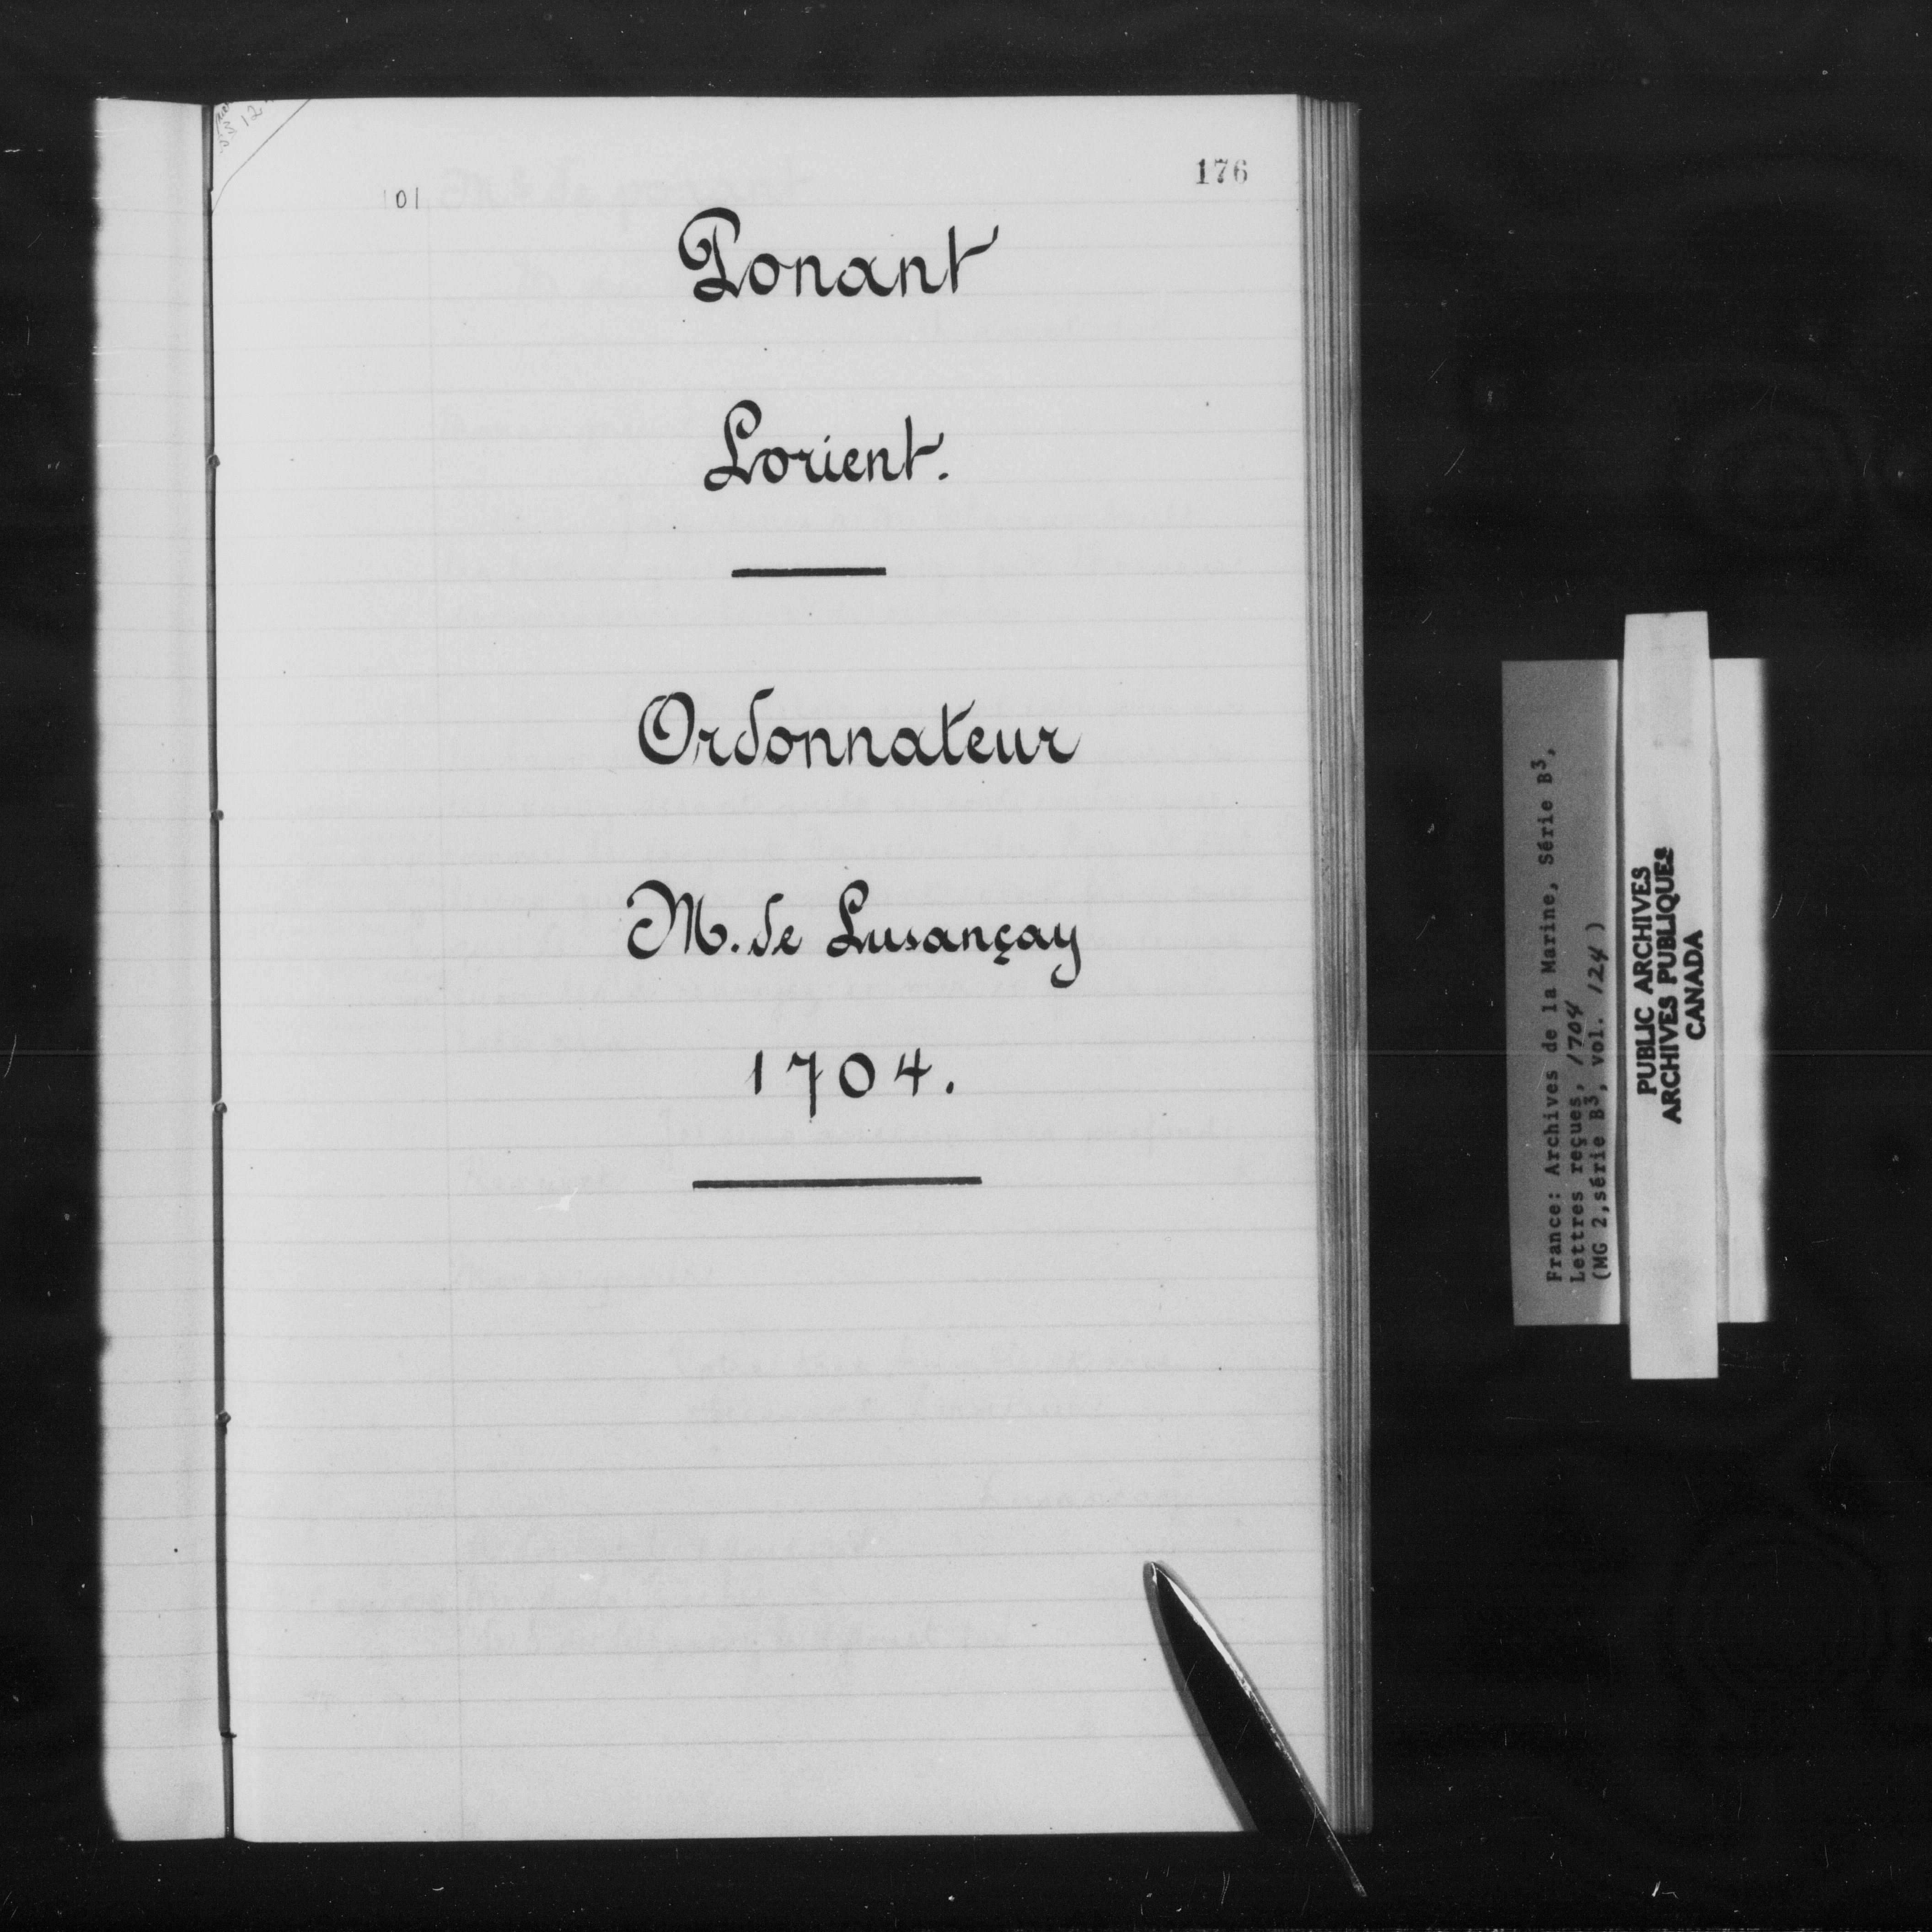 176
101
Ponant
Lorient.
Ordonnateur
M. de Lusançay
1704.
France: Archives de la Marine, Série B3,
Lettres reçues, 1704
(MG 2, série B3, vol. 124)
PUBLIC ARCHIVES
ARCHIVES PUBLIQUES
CANADA